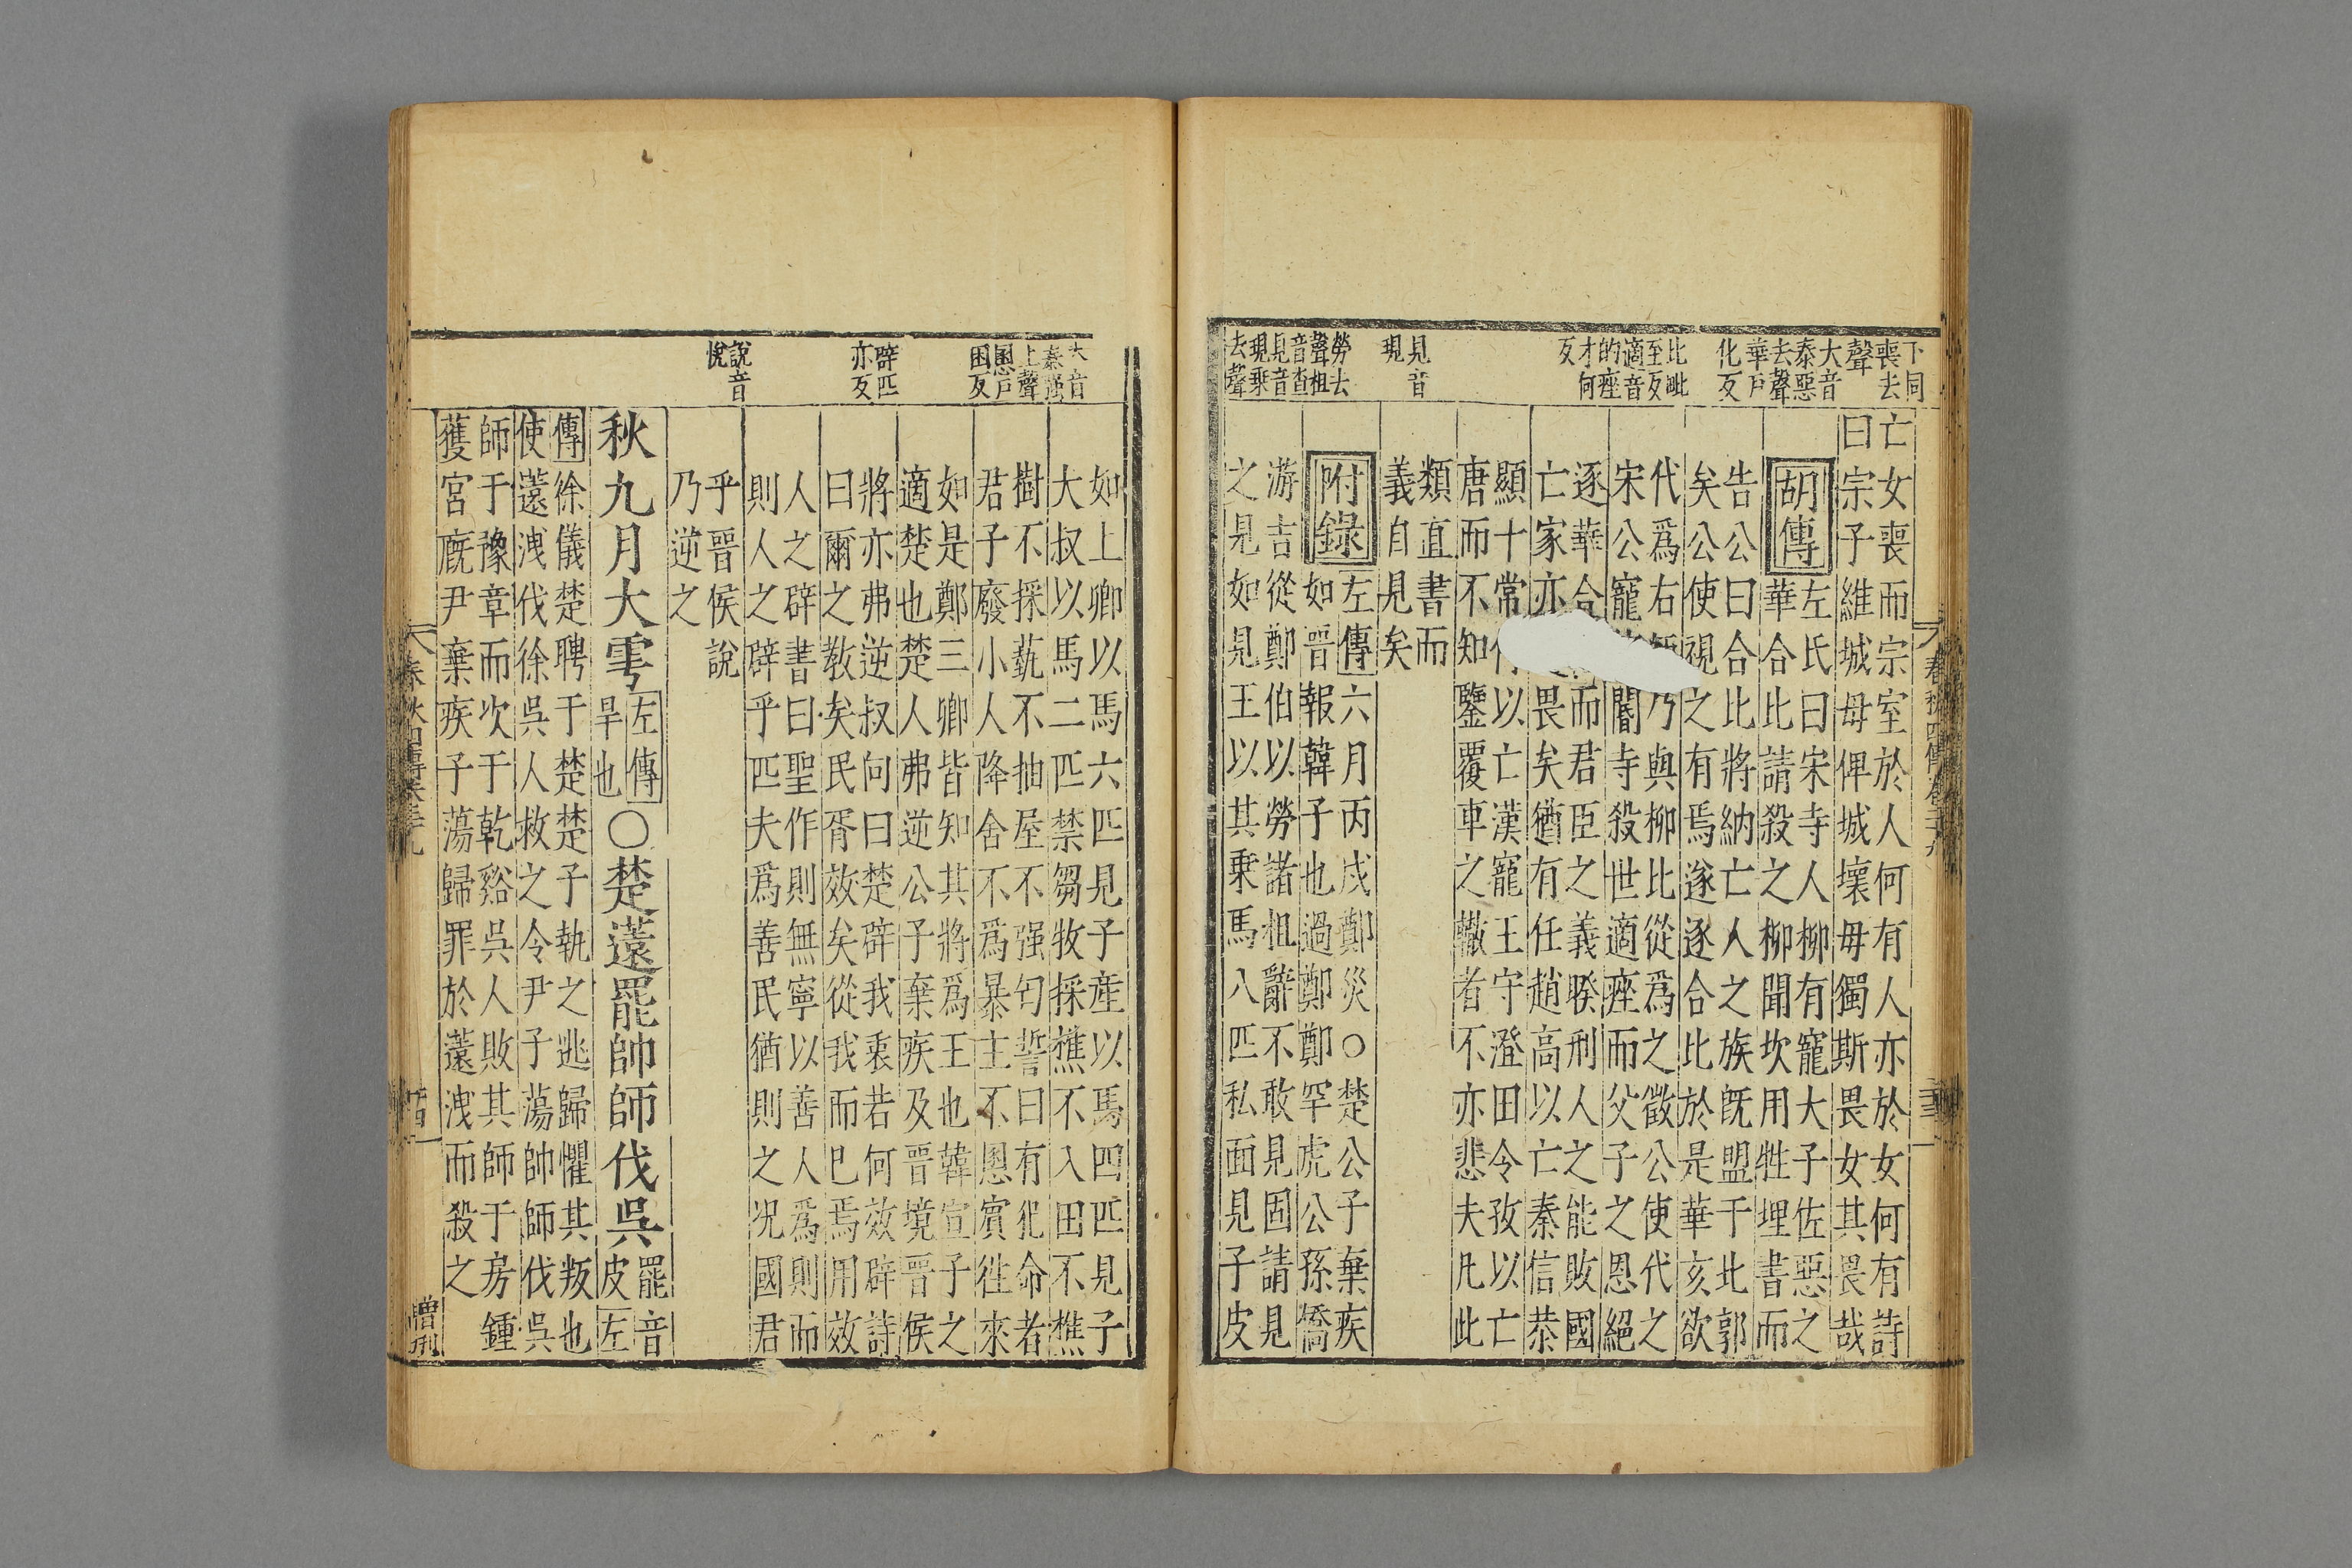 下同
喪去
聲
大音
泰惡
去聲
華戸
化反
比毗
至反
適音
的痤
才何
反
見音
現
勞去
聲柤
音查
見音
現乗
去聲
亡女喪而宗室於人何有人亦於女何有詩
曰宗子維城毋俾城壞毋獨斯畏女其畏哉
胡傳
左氏曰宋寺人柳有寵大子佐惡之
華合比請殺之柳聞坎用牲埋書而
告公曰合比將納亡人之族旣盟于北郭
矣公使視之有焉遂逐合比於是華亥欲
代爲右乃與柳比從爲之徵公使代之
宋公寵閽寺殺世適痤而父子之恩絕
逐華合而君臣之義睽刑人之能敗國
亡家亦畏矣猶有任趙高以亡秦信恭
顯十常以亡漢寵王守澄田令孜以亡
唐而不知鑒覆車之轍者不亦悲夫凡此
類直書而
義自見矣
附錄
左傳六月丙戌鄭災○楚公子棄疾
如晉報韓子也過鄭鄭罕虎公孫僑
游吉從鄭伯以勞諸柤辭不敢見固請見
之見如見王以其乗馬八匹私面見子皮
大音
泰强
上聲
慁戶
困反
辟匹
亦反
說音
悅
如上卿以馬六匹見子産以馬四匹見子
大叔以馬二匹禁芻牧採樵不入田不樵
樹不採蓺不抽屋不强匄誓曰有犯命者
君子廢小人降舍不爲暴主不慁賓徃來
如是鄭三卿皆知其將爲王也韓宣子之
適楚也楚人弗逆公子棄疾及晉境晉侯
將亦弗逆叔向曰楚辟我衷若何效辟詩
曰爾之敎矣民胥效矣從我而已焉用效
人之辟書曰聖作則無寧以善人爲則而
則人之辟乎匹夫爲善民猶則之況國君
乎晉侯說
乃逆之
秋九月大雩
左傳
旱也
○楚薳罷帥師伐吳
罷音
皮左
傳徐儀楚聘于楚楚子執之逃歸懼其叛也
使薳洩伐徐吳人救之令尹子蕩帥師伐吳
師于豫章而次于乾谿吳人敗其師于房鍾
獲宮廐尹棄疾子蕩歸罪於薳洩而殺之